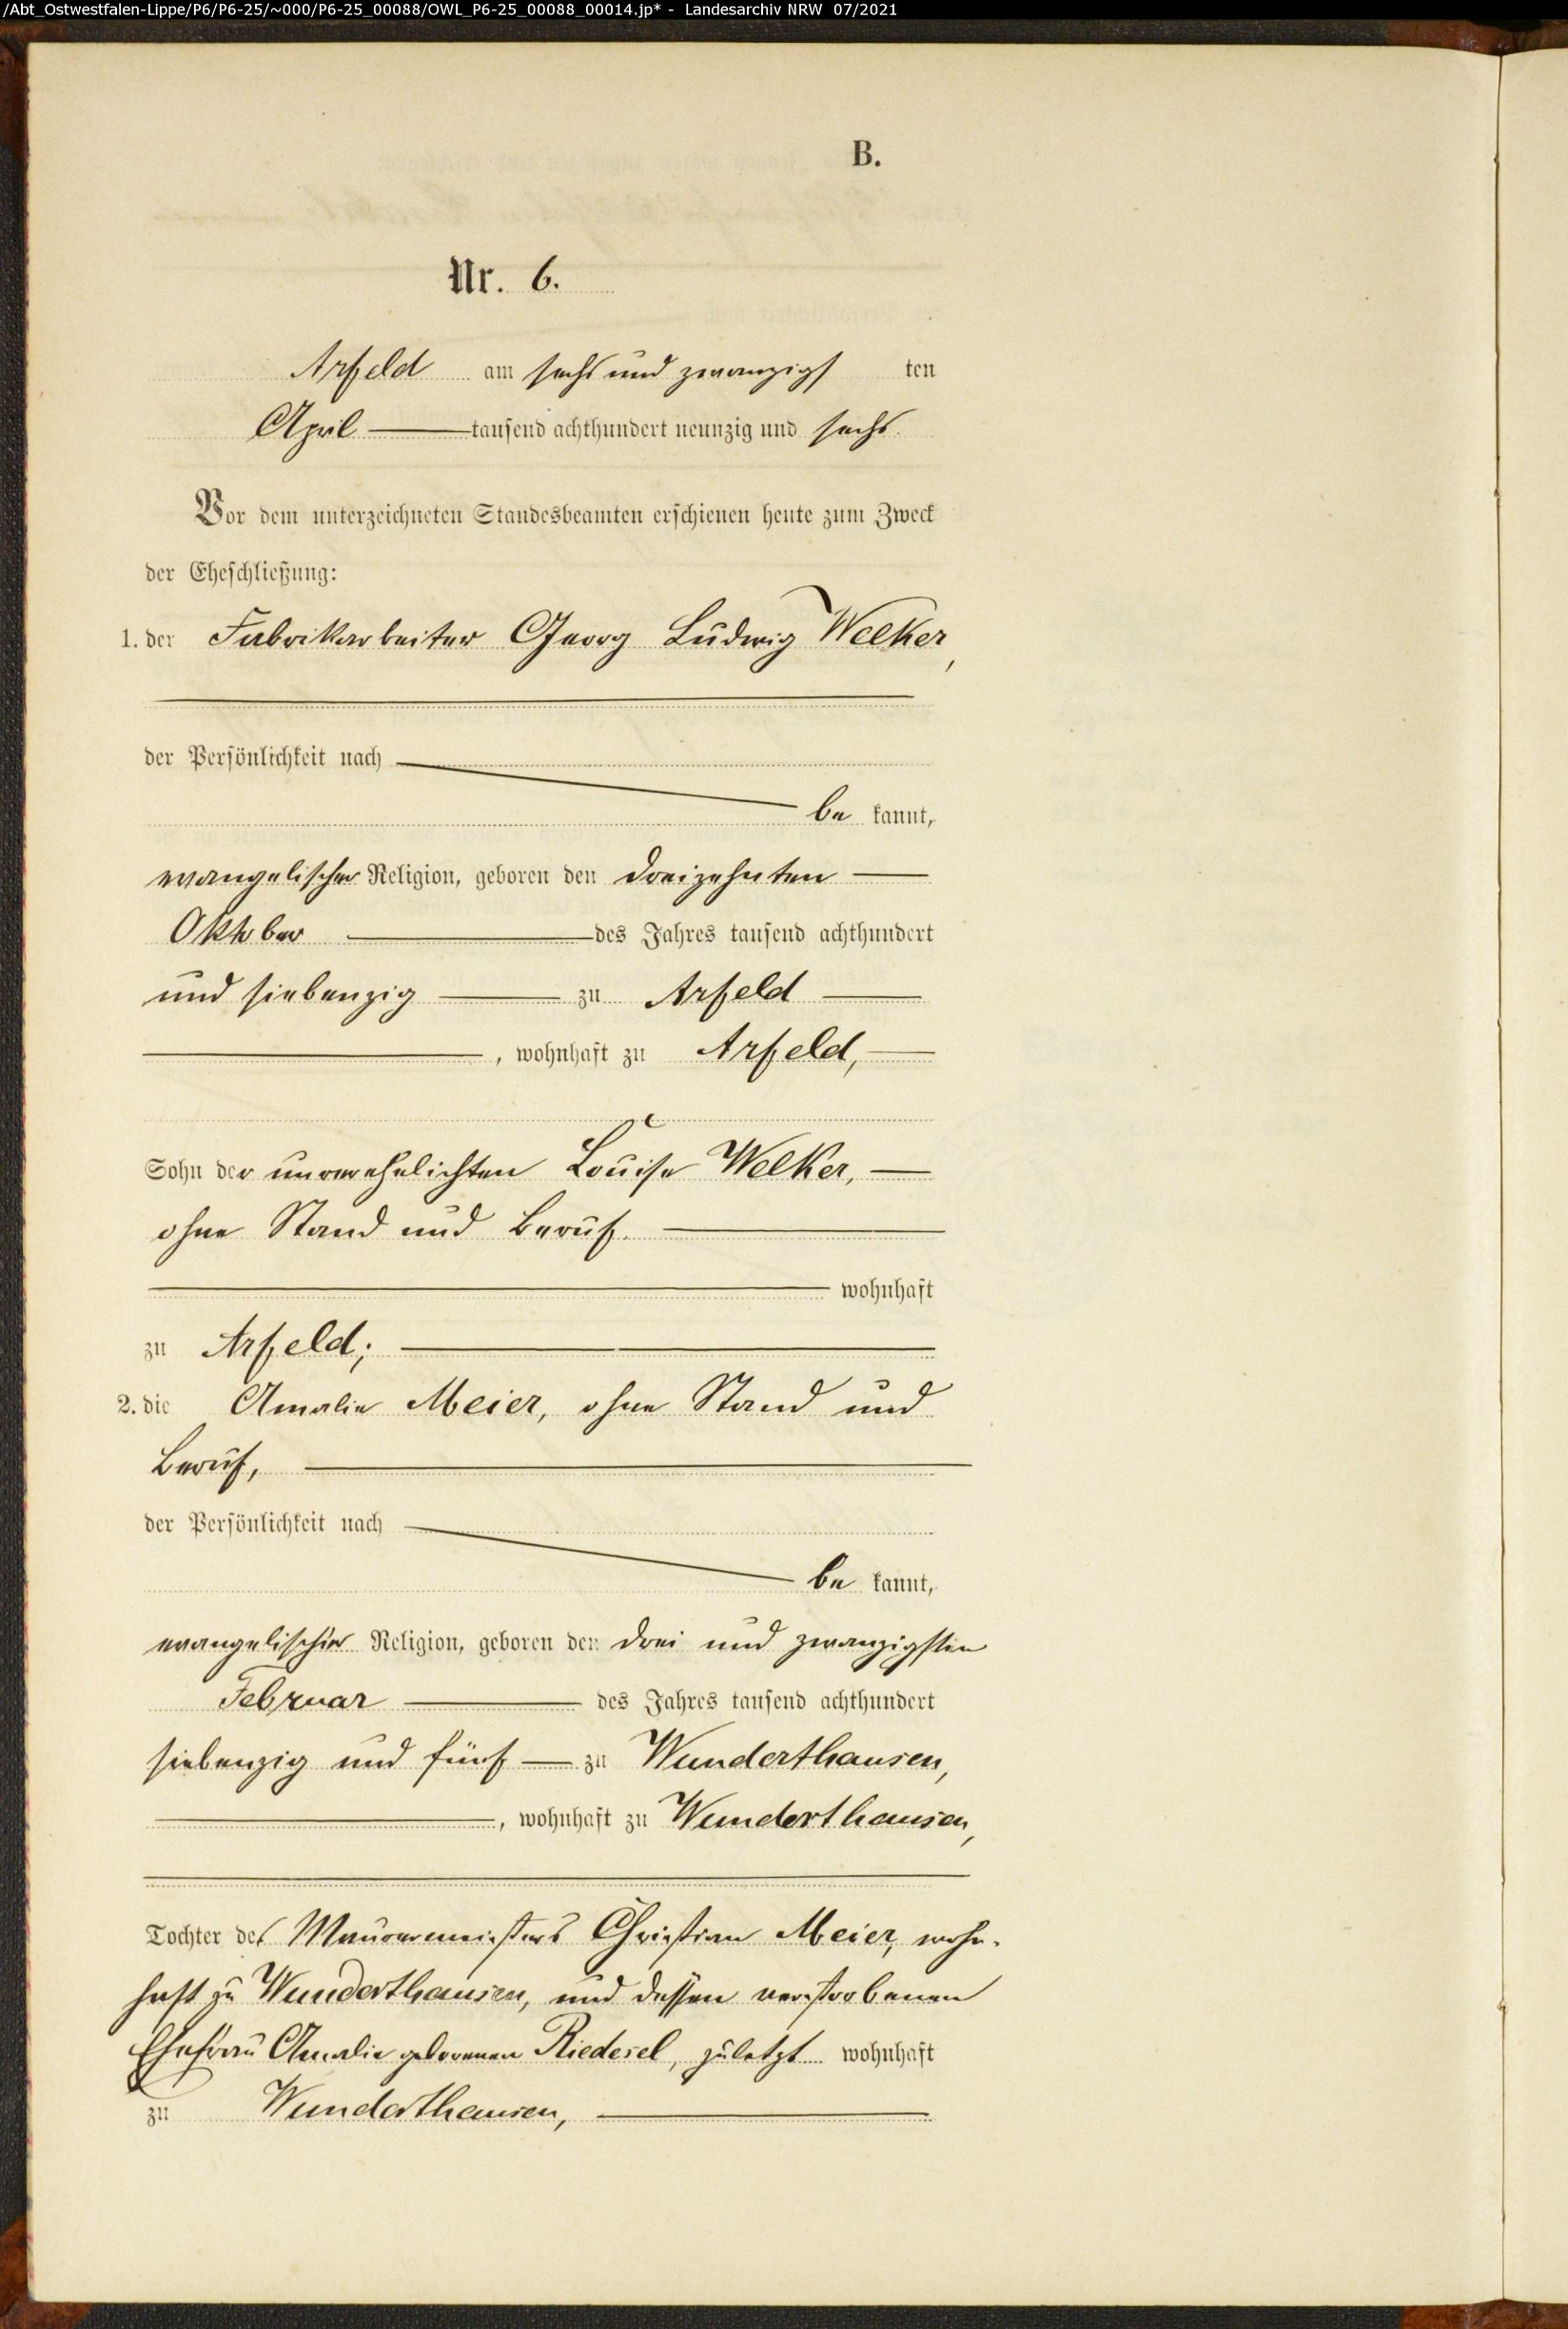 /Abt_Ostwestfalen-Lippe/P6/P6-25/~000/P6-25_00088/OWL_P6-25_00088_00014.jp* - Landesarchiv NRW 07/2021
B.
Nr. 6.
Arfeld am sechs und zwanzigs ten
April tausend achthundert neunzig und sechs.
Vor dem unterzeichneten Standesbeamten erschienen heute zum Zweck
der Eheschließung:
1. der Fabrikarbeiter Georg Ludwig Welker,
der Persönlichkeit nach
be kannt,
evangelischer Religion, geboren den dreizehnten
Oktober des Jahres tausend achthundert
und siebenzig zu Arfeld
, wohnhaft zu Arfeld,
Sohn der unverehelichten Louise Welker,
ohne Stand und Beruf.
wohnhaft
zu Arfeld;
2. die Amalie Meier, ohne Stand und
Beruf,
der Persönlichkeit nach
be kannt,
evangelischer Religion, geboren den drei und zwanzigsten
Februar des Jahres tausend achthundert
siebenzig und fünf zu Wunderthausen,
, wohnhaft zu Wunderthausen,
Tochter des Maurermeisters Christian Meier, wohn-
haft zu Wunderthausen, und dessen verstorbenen
Ehefrau Amalie geborenen Riedesel, zuletzt wohnhaft
zu Wunderthausen,